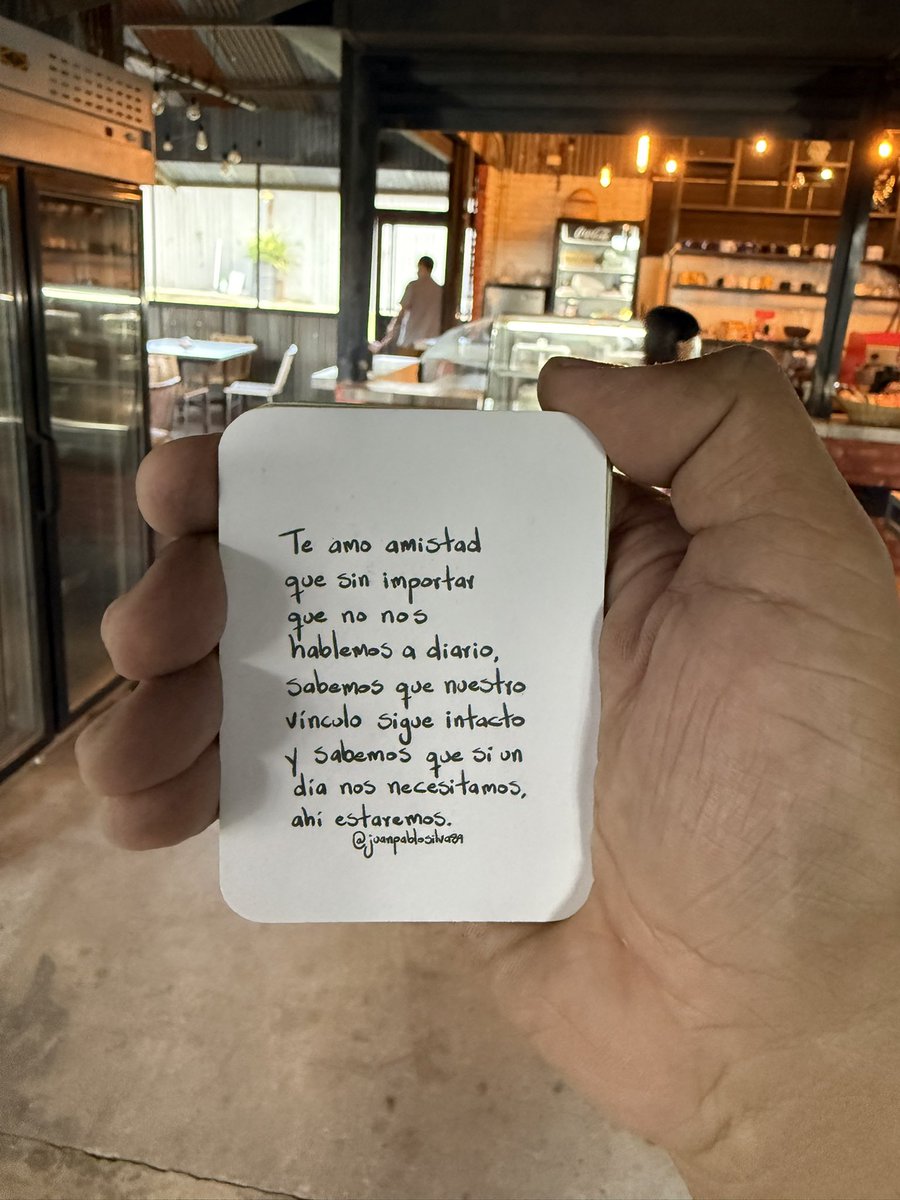 Coca-Cola
Te amo amistad
que sin importar
que no nos
hablemos a diario,
sabemos que nuestro
vínculo sigue intacto
y sabemos que si un
día nos necesitamos,
ahí estaremos.
@juanpablosilva89